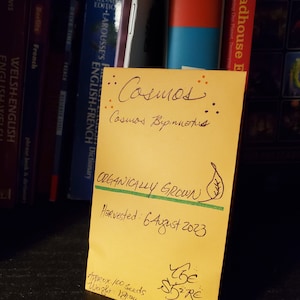 WELSH-ENGLISH
French
LAROUSSE'S
ENGLISH-FRENCH
Dictionary
adhouse E
Cosmos
Cosmos Bipinnatus
ORGANICALLY GROWN
Harvested: 6 August 2023
Approx 100 Seeds